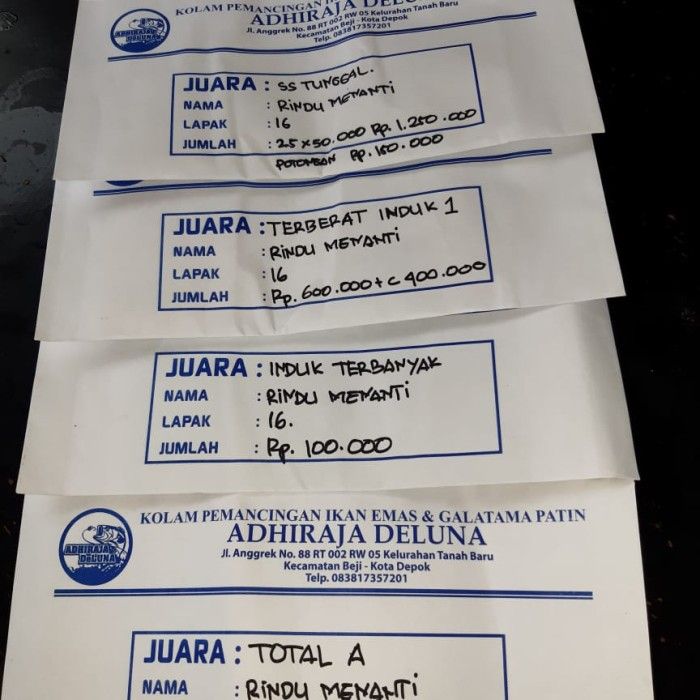 KOLAM PEMANCINGAN IKAN EMAS & GALATAMA PATIN
ADHIRAJA DELUNA
Jl. Anggrek No. 88 RT 002 RW 05 Kelurahan Tanah Baru
Kecamatan Beji - Kota Depok
Telp. 083817357201
ADHIRAJA
DELUNA
JUARA : SS TUNGGAL.
NAMA : RINDU MENANTI
LAPAK : 16
JUMLAH : 25 x 50.000 Rp. 1.250.000
POTONGAN Rp. 150.000
JUARA : TERBERAT INDUK 1
NAMA : RINDU MENANTI
LAPAK : 16
JUMLAH : Rp. 600.000 + C 400.000
JUARA : INDUK TERBANYAK
NAMA : RINDU MENANTI
LAPAK : 16.
JUMLAH : Rp. 100.000
ADHIRAJA
DELUNA
KOLAM PEMANCINGAN IKAN EMAS & GALATAMA PATIN
ADHIRAJA DELUNA
Jl. Anggrek No. 88 RT 002 RW 05 Kelurahan Tanah Baru
Kecamatan Beji - Kota Depok
Telp. 083817357201
JUARA : TOTAL A
NAMA : RINDU MENANTI